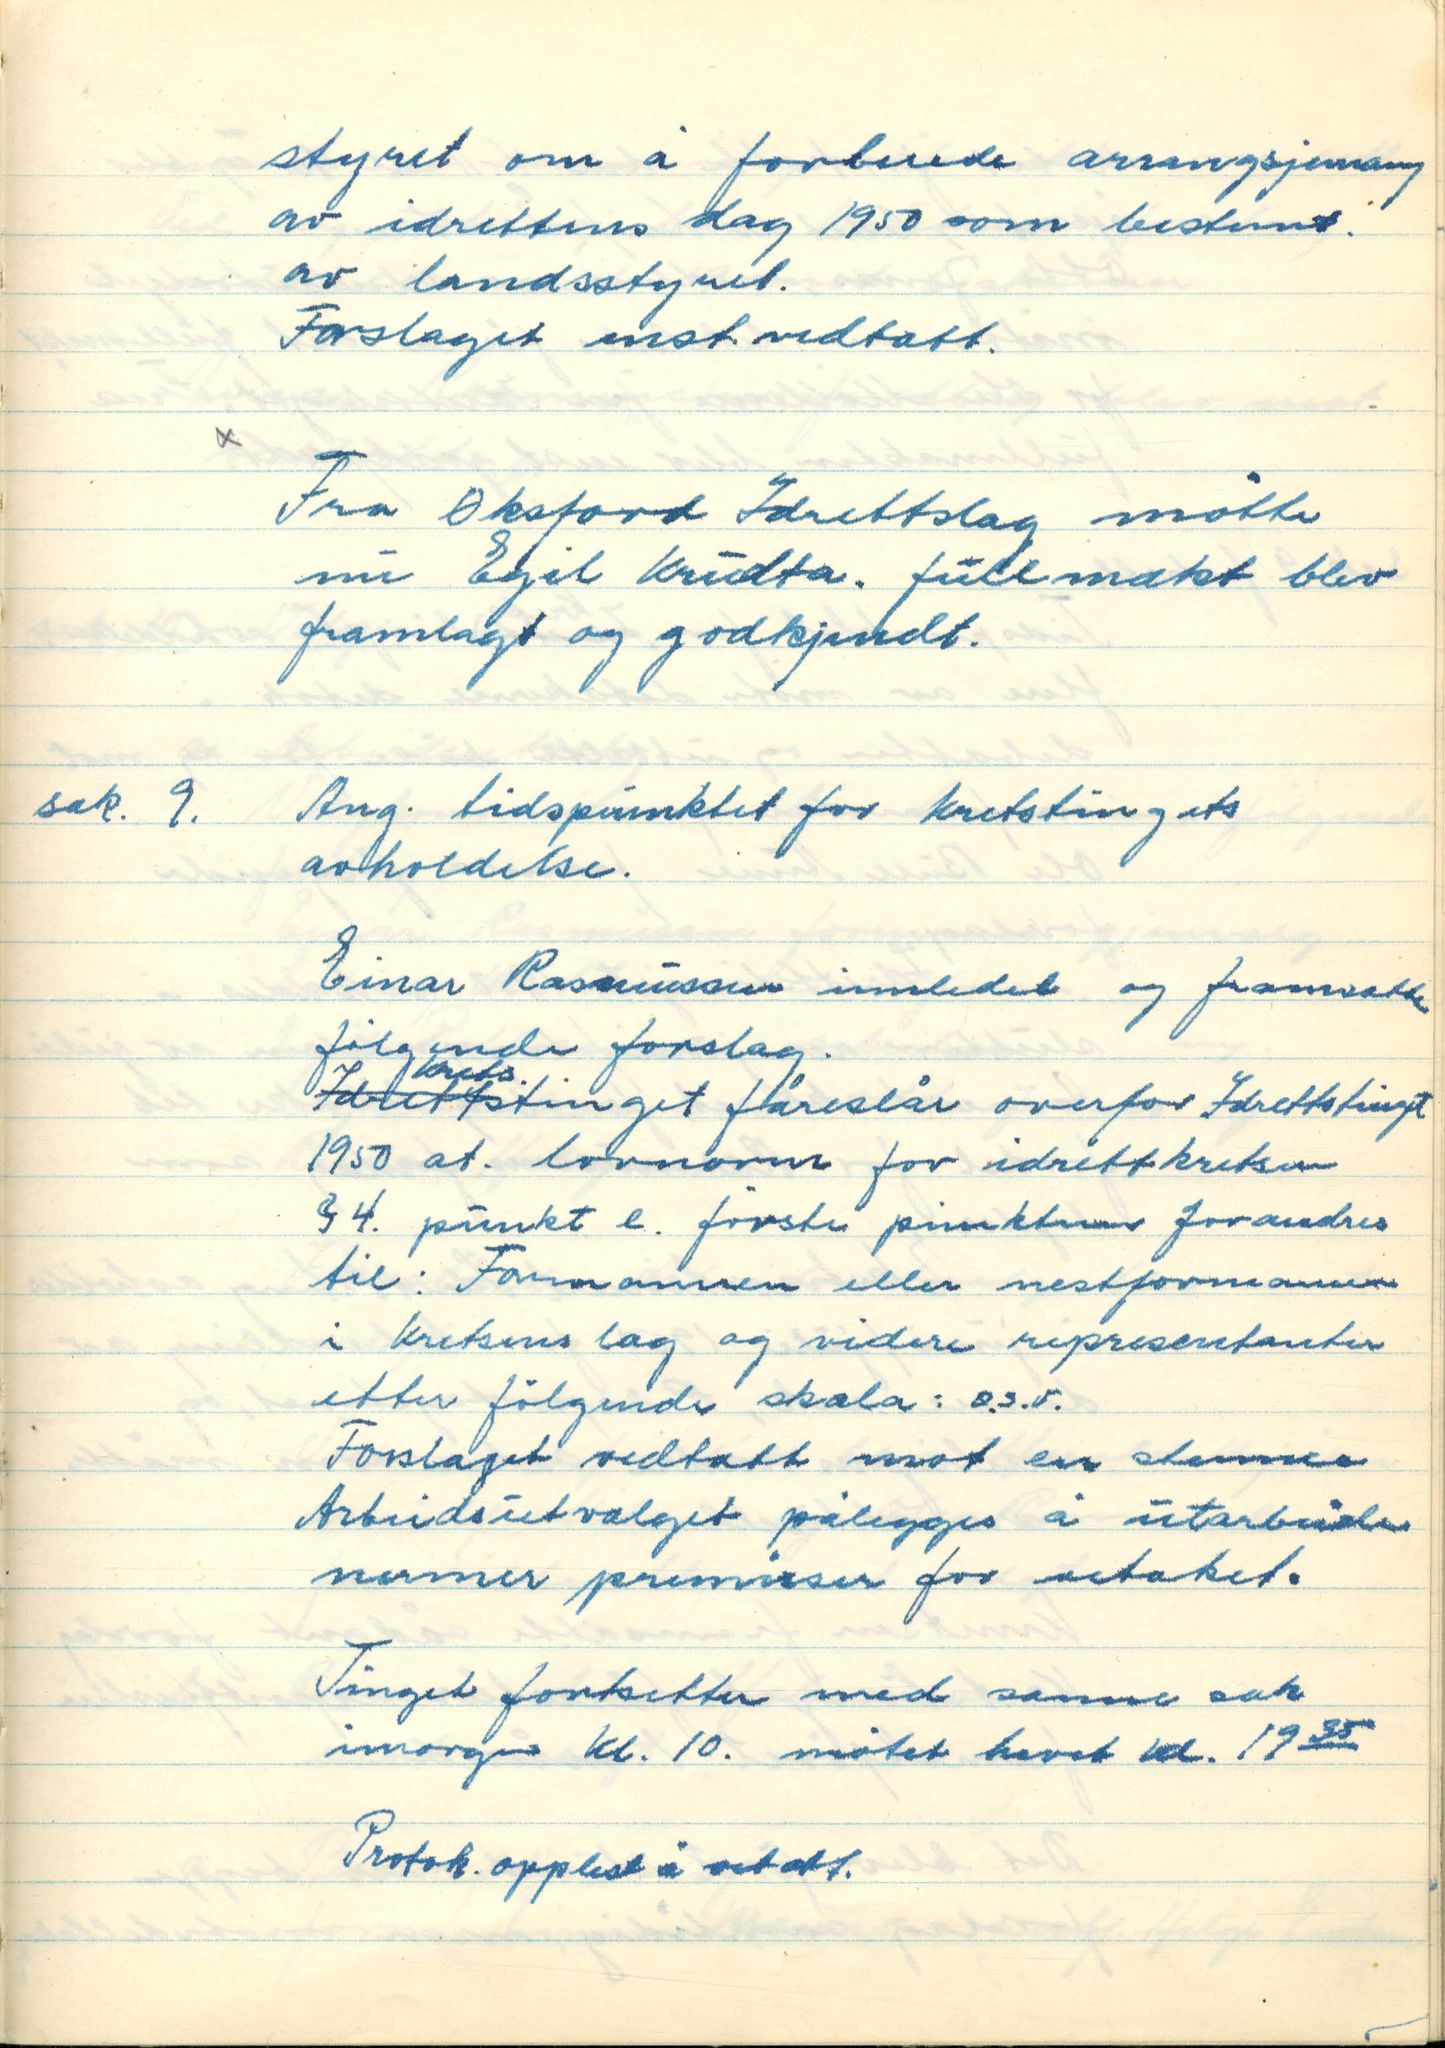 styret om å forberede arrangsjemang
av idrettens dag 1950 som bestemt.
av landsstyret.
Forslaget enst. vedtatt.
x
Fra Øksfjord Idrettslag møtte
nu Egil Krudta. fullmakt blev
framlagt og godkjendt.
sak. 9. Ang. tidspunktet for kretstingets
avholdelse.
Einar Rasmussen innledet og framsatte
følgende forslag.
Krets.
Idrettstinget føreslår overfor Idrettstinget
1950 at. lovnorm for idrettkretsen
§ 4. punkt e. første pinktum forandres
til: Formannen eller nestformannen
i kretsens lag og videre representanter
etter følgende skala: o.s.v.
Forslaget vedtatt mot en stemme
Arbeidsutvalget pålegges å utarbeide
nermer premisser for vetaket.
Tinget fortsetter med samme sak
imorgen kl. 10. møtet hevet kl. 19 35
Protok. opplest å vetatt.